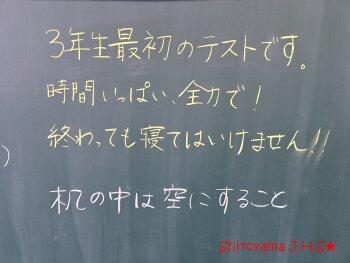 3年生最初のテストです。
時間いっぱい、全力で!
終わっても寝てはいけません!!
机の中は空にすること
Shiroyama J.H.S★